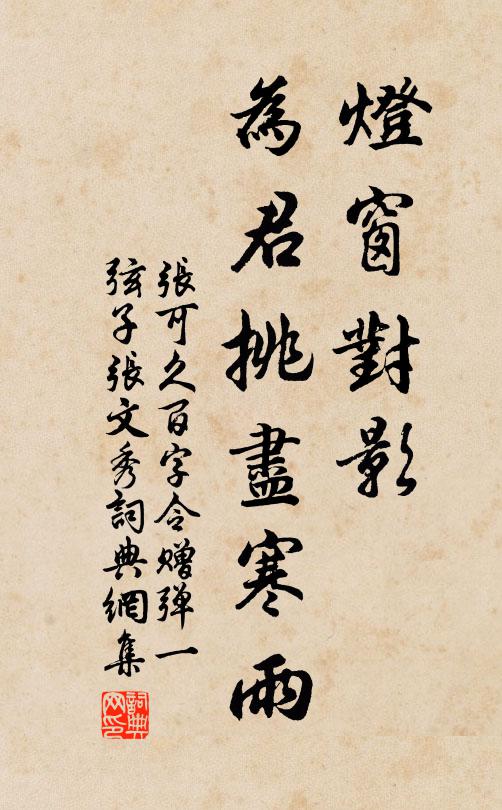 燈窗對影
為君挑盡寒雨
張可久百字令贈弹一
弦子張文秀詞典網集
詞典
网印